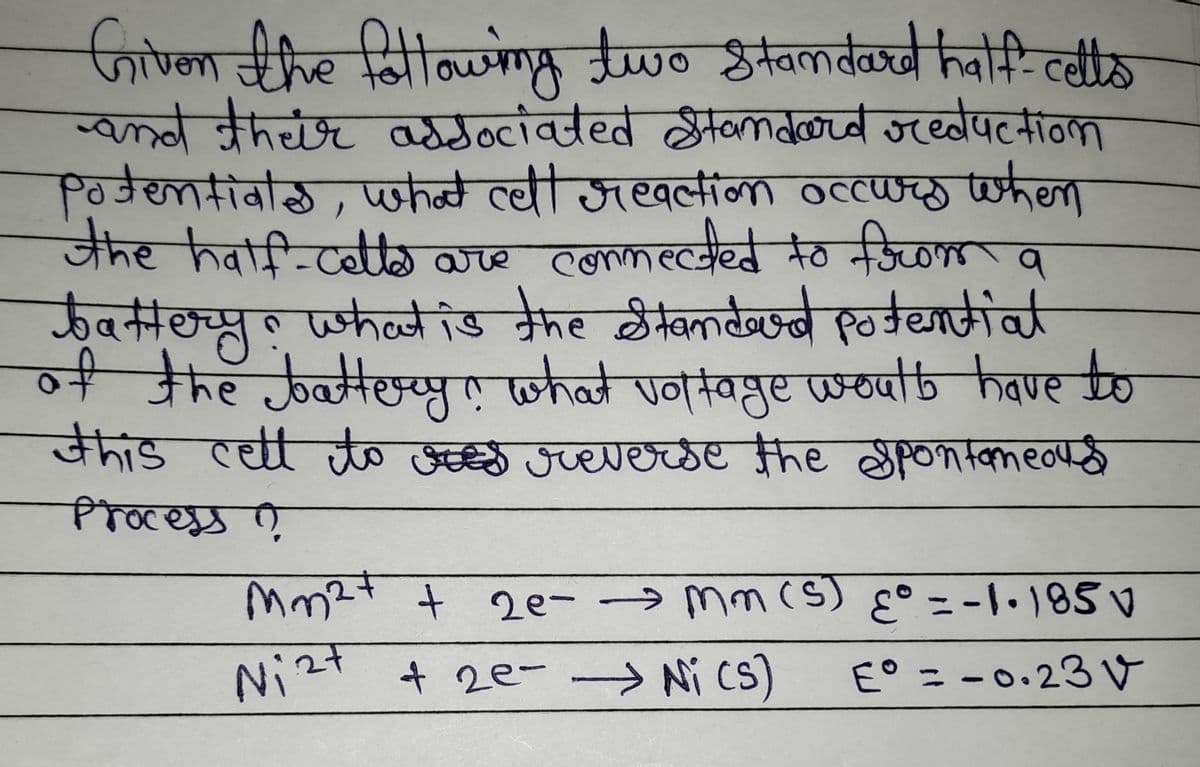 Given the following two standard half-cells
and their associated standard reduction
potentials, what cell reaction occurs when
the half-cells are connected to from a
battery? what is the standard potential
of the battery? what voltage woulb have to
this cell to res reverse the spontaneous
Process ?
Mn²⁺ + 2e- → Mn (S) ε° = -1.185 V
Ni²⁺ + 2e- → Ni (S) E° = -0.23 V